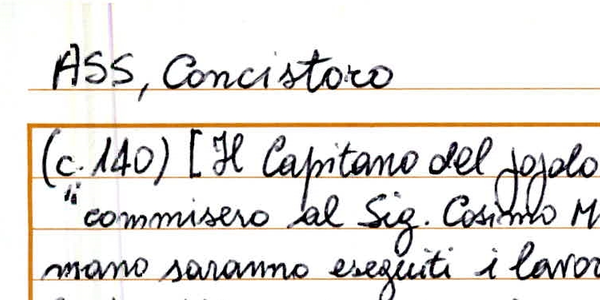 ASS, Concistoro
(c. 140) [Il Capitano del popolo
commisero al Sig. Cosimo M
mano saranno eseguiti i lavor